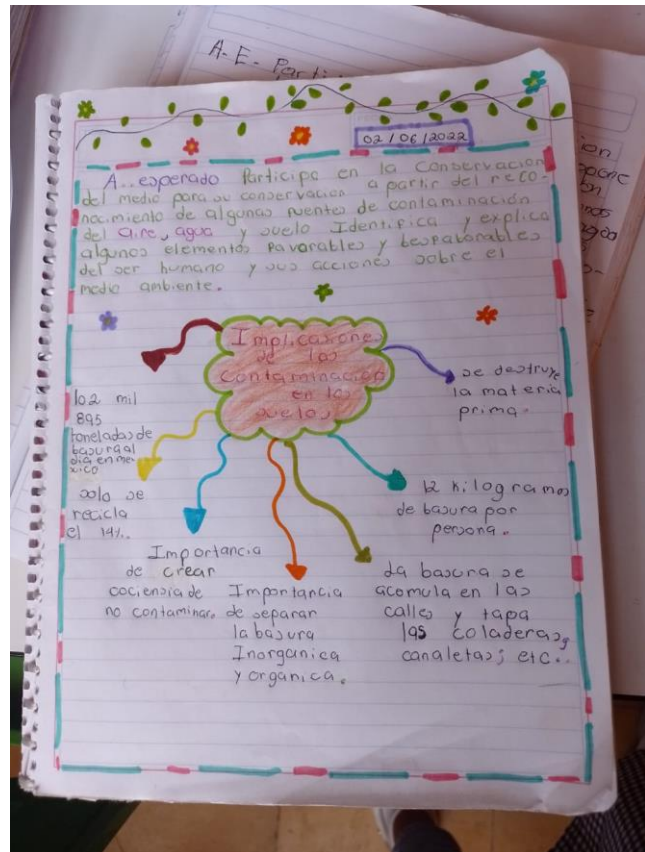 A.E. Parti
02/06/2022
A..esperado Participo en la Conservacion
del medio para su conservacion a partir del reco-
nocimiento de algunas fuentes de contaminación
del aire, agua y suelo Identifica y explica
algunos elementos favorables y besfaborables
del ser humano y sus acciones sobre el
medio ambiente.
Implicasiones
de las
Contaminacion
en los
suelos
102 mil
895
toneladas de
basura al
dia en me
xico
solo se
recicla
el 14%.
Importancia
de crear
cociensia de
no contaminar.
Importancia
de separar
la basura
Inorganica
y organica.
La basura se
acomula en las
calles y tapa
las coladeras,
canaletas; etc..
12 Kilogramos
de basura por
persona.
se destruye
la materia
prima.